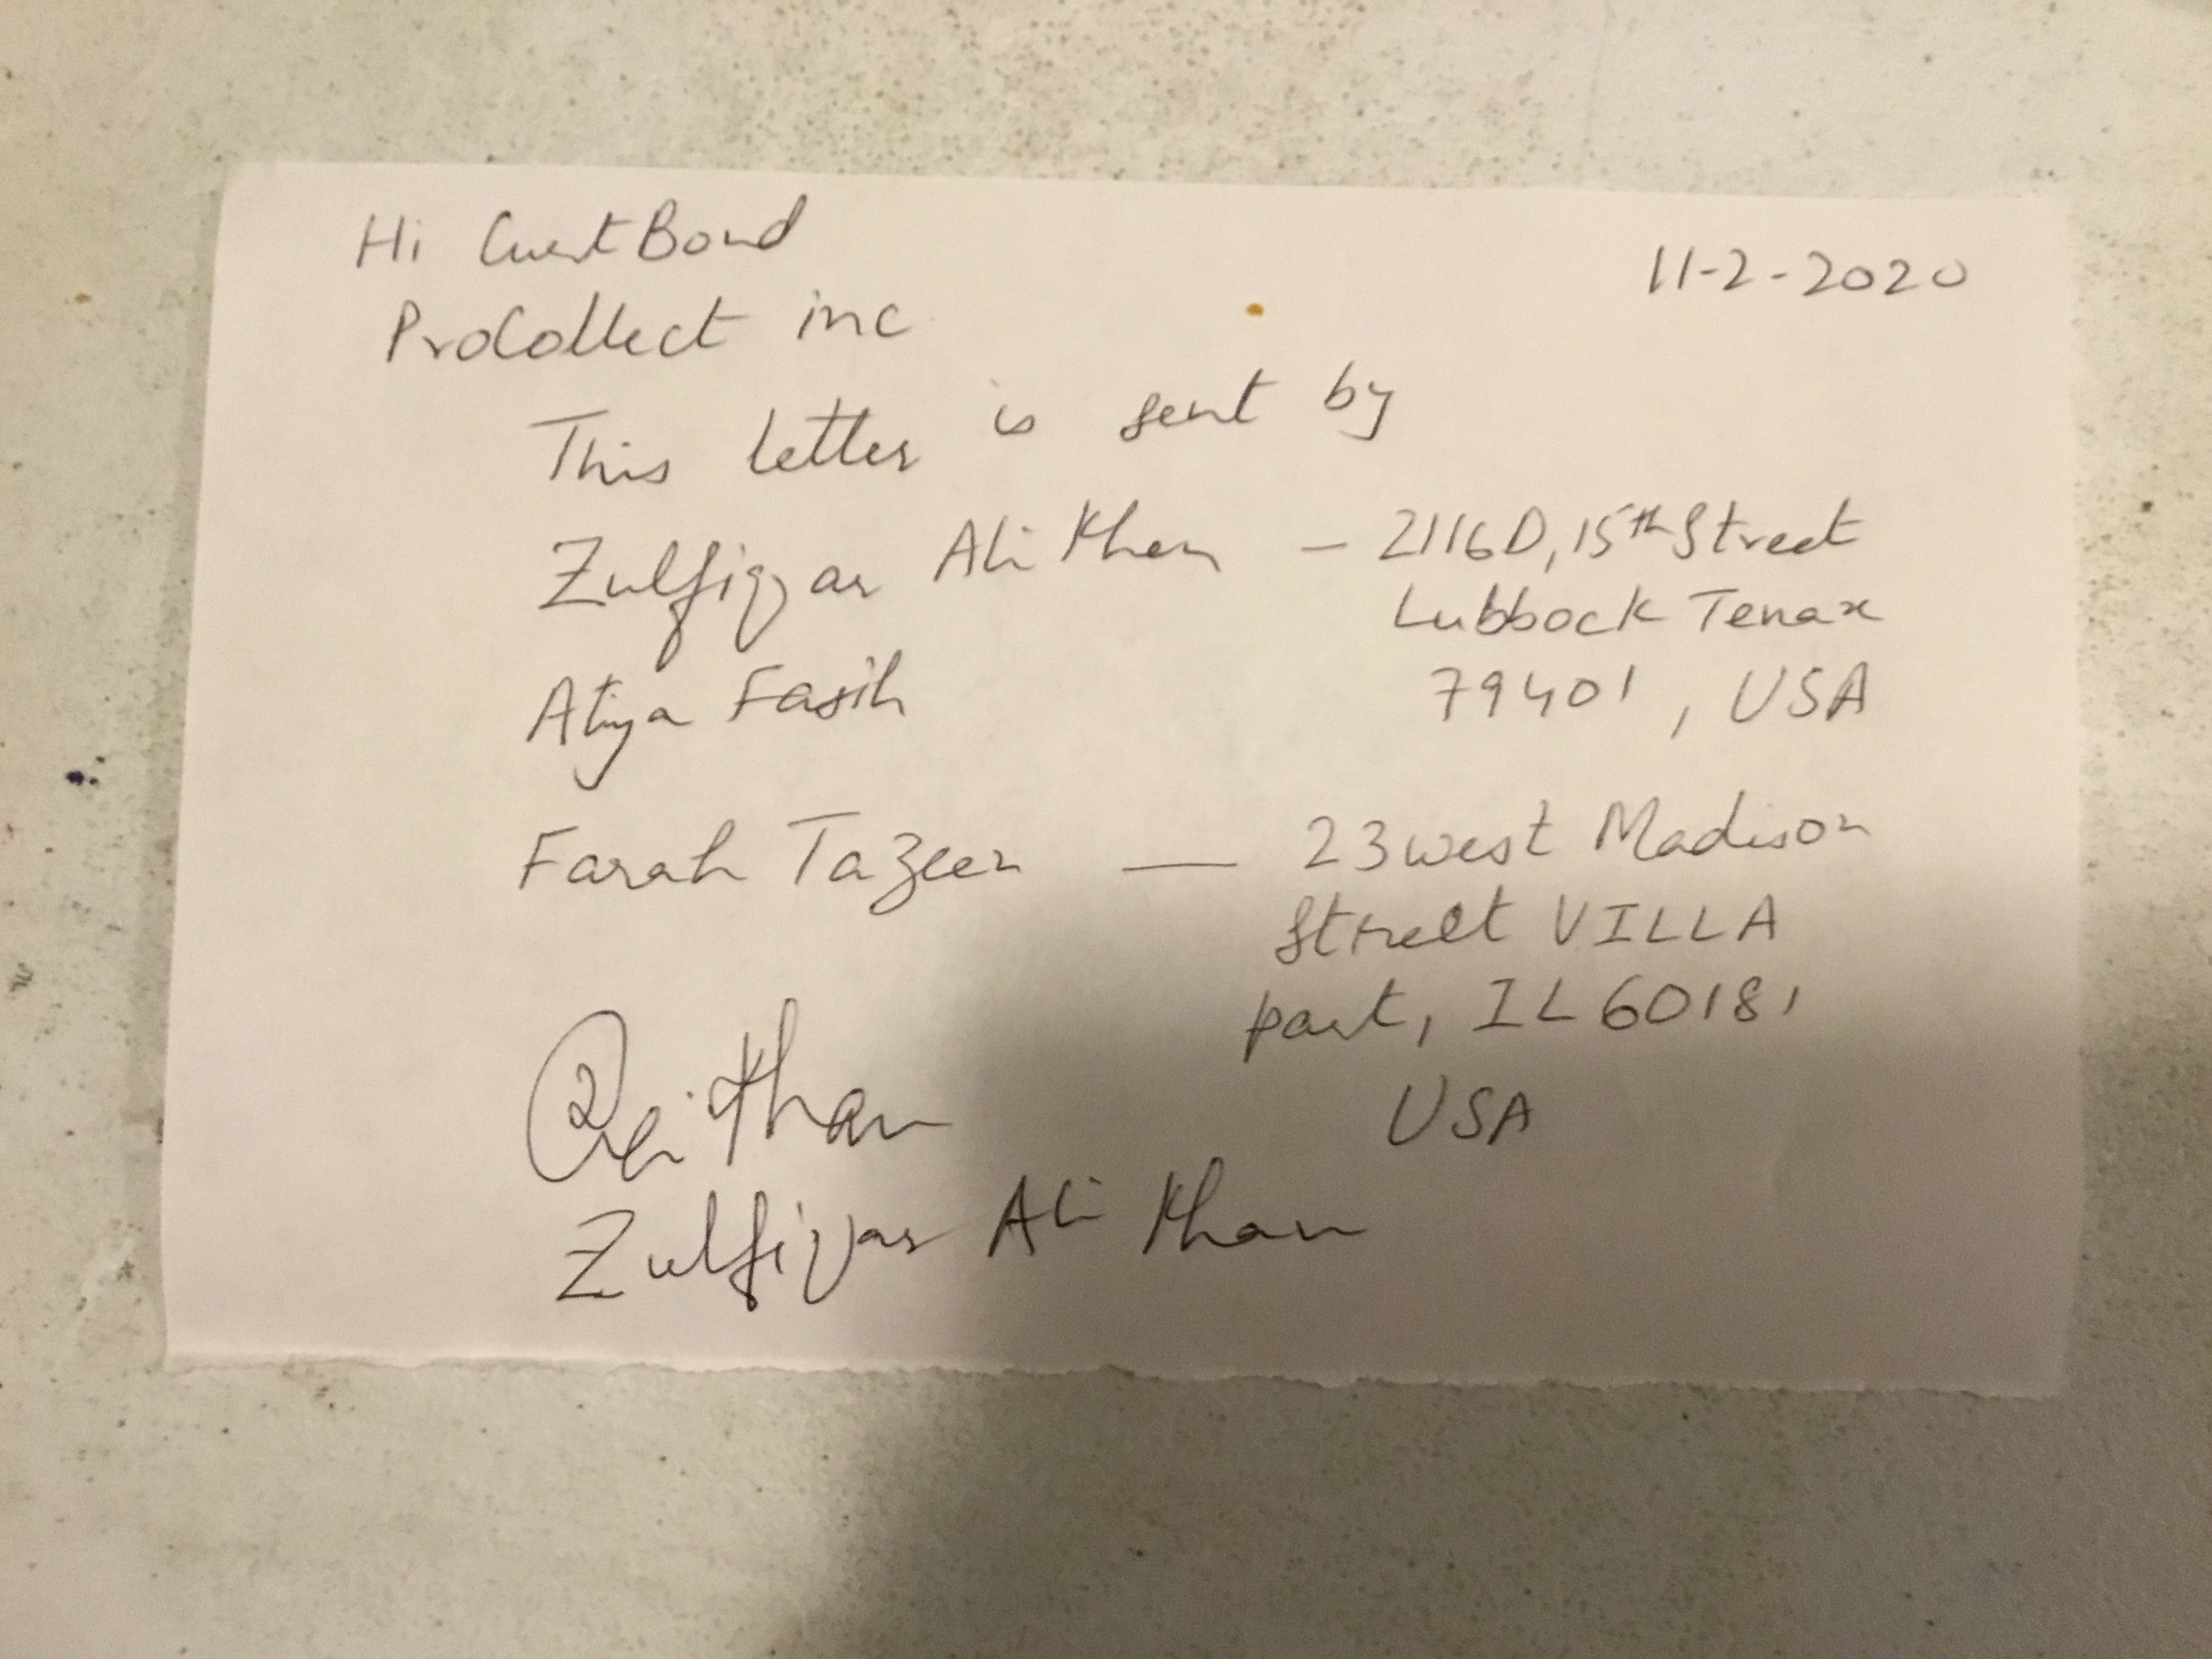 Hi CurtBond
11-2-2020
ProCollect inc
This letter is sent by
Zulfiqar Ali Khan - 2116D, 15th Street
Lubbock Texax
79401, USA
Atiya Fasih
Farah Tazeen — 23west Madison
Street VILLA
part, IL 60181
USA
Khan
Zulfiqar Ali Khan